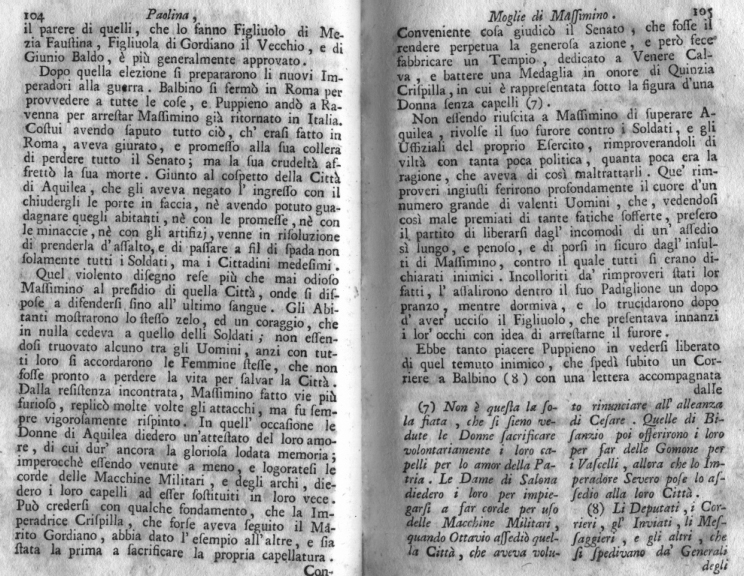 104 Paolina,
il parere di quelli, che lo fanno Figliuolo di Me-
zia Faustina, Figliuola di Gordiano il Vecchio, e di
Giunio Baldo, è più generalmente approvato.
Dopo quella elezione si prepararono li nuovi Im-
peradori alla guerra. Balbino si fermò in Roma per
provvedere a tutte le cose, e Puppieno andò a Ra-
venna per arrestar Massimino già ritornato in Italia.
Costui avendo saputo tutto ciò, ch' erasi fatto in
Roma, aveva giurato, e promesso alla sua collera
di perdere tutto il Senato; ma la sua crudeltà af-
frettò la sua morte. Giunto al cospetto della Città
di Aquilea, che gli aveva negato l' ingresso con il
chiudergli le porte in faccia, nè avendo potuto gua-
dagnare quegli abitanti, nè con le promesse, nè con
le minaccie, nè con gli artifizj, venne in risoluzione
di prenderla d'assalto, e di passare a fil di spada non
solamente tutti i Soldati, ma i Cittadini medesimi.
Quel violento disegno rese più che mai odioso
Massimino al presidio di quella Città, onde si dis-
pose a difendersi sino all' ultimo sangue. Gli Abi-
tanti mostrarono lo stesso zelo, ed un coraggio, che
in nulla cedeva a quello delli Soldati; non essen-
dosi truovato alcuno tra gli Uomini, anzi con tut-
ti loro si accordarono le Femmine stesse, che non
fosse pronto a perdere la vita per salvar la Città.
Dalla resistenza incontrata, Massimino fatto vie più
furioso, replicò molte volte gli attacchi, ma fu sem-
pre vigorosamente rispinto. In quell' occasione le
Donne di Aquilea diedero un'attestato del loro amo-
re, di cui dur' ancora la gloriosa lodata memoria;
imperocchè essendo venute a meno, e logoratesi le
corde delle Macchine Militari, e degli archi, die-
dero i loro capelli ad esser sostituiti in loro vece.
Può credersi con qualche fondamento, che la Im-
peradrice Crispilla, che forse aveva seguito il Ma-
rito Gordiano, abbia dato l'esempio all'altre, e sia
stata la prima a sacrificare la propria capellatura.
Con-
Moglie di Massimino. 105
Conveniente cosa giudicò il Senato, che fosse il
rendere perpetua la generosa azione, e però fece
fabbricare un Tempio, dedicato a Venere Cal-
va, e battere una Medaglia in onore di Quinzia
Crispilla, in cui è rappresentata sotto la figura d'una
Donna senza capelli (7).
Non essendo riuscita a Massimino di superare A-
quilea, rivolse il suo furore contro i Soldati, e gli
Uffiziali del proprio Esercito, rimproverandoli di
viltà con tanta poca politica, quanta poca era la
ragione, che aveva di così maltrattarli. Que' rim-
proveri ingiusti ferirono profondamente il cuore d'un
numero grande di valenti Uomini, che, vedendosi
così male premiati di tante fatiche sofferte, presero
il partito di liberarsi dagl' incomodi di un' assedio
sì lungo, e penoso, e di porsi in sicuro dagl' insul-
ti di Massimino, contro il quale tutti si erano di-
chiarati inimici. Incolloriti da' rimproveri stati lor
fatti, l' assalirono dentro il suo Padiglione un dopo
pranzo, mentre dormiva, e lo trucidarono dopo
d' aver ucciso il Figliuolo, che presentava innanzi
i lor' occhi con idea di arrestarne il furore.
Ebbe tanto piacere Puppieno in vedersi liberato
di quel temuto inimico, che spedì subito un Cor-
riere a Balbino (8) con una lettera accompagnata
dalle
(7) Non è questa la so-
la fiata, che si sieno ve-
dute le Donne sacrificare
volontariamente i loro ca-
pelli per lo amor della Pa-
tria. Le Dame di Salona
diedero i loro per impie-
garsi a far corde per uso
delle Macchine Militari,
quando Ottavio assediò quel-
la Città, che aveva volu-
to rinunciare all' alleanza
di Cesare. Quelle di Bi-
sanzio poi offerirono i loro
per far delle Gomone per
i Vascelli, allora che lo Im-
peradore Severo pose lo as-
sedio alla loro Città.
(8) Li Deputati, i Cor-
rieri, gl' Inviati, li Mes-
saggieri, e gli altri, che
si spedivano da' Generali
degli